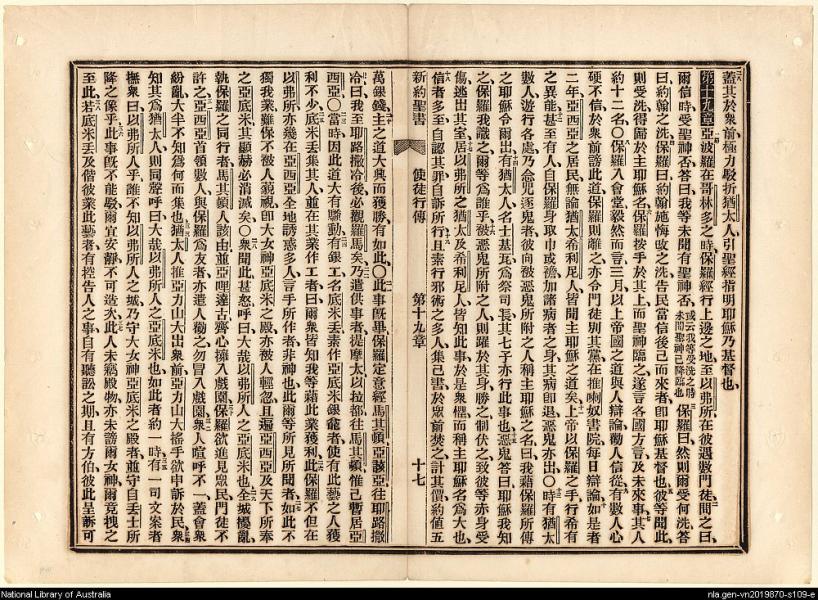 蓋其於衆前極力駁折猶太人引聖經指明耶穌乃基督也
第十九章亞波羅在哥林多之時保羅經行上邊之地至以弗所在彼遇數門徒問之曰
爾信時受聖神否答曰我等未聞有聖神否或云我等受洗之時未聞聖神已降臨也保羅曰然則爾受何洗答
曰約翰之洗保羅曰約翰施悔改之洗告民當信後己而來者卽耶穌基督也彼等聞此
則受洗得歸於主耶穌名保羅按手於其上而聖神臨之遂言各國方言及未來事其人
約十二名○保羅入會堂毅然而言三月以上帝國之道與人辯論勸人信從有數人心
硬不信於衆前謗此道保羅則離之亦令門徒別其黨在推喇奴書院每日辯論如是者
二年亞西亞之居民無論猶太希利尼人皆聞主耶穌之道矣上帝以保羅之手行希有
之異能甚至有人自保羅身取巾或襜加諸病者之身其病卽退惡鬼亦出○時有猶太
數人遊行各處乃念咒逐鬼者彼向被惡鬼所附之人稱主耶穌之名曰我藉保羅所傳
之耶穌令爾出有猶太人名士基瓦爲祭司長其七子亦行此事也惡鬼答曰耶穌我知
之保羅我識之爾等爲誰乎被惡鬼所附之人則躍於其身勝之制伏之致彼等赤身受
傷逃出其室居以弗所之猶太及希利尼人皆知此事於是衆懼而稱主耶穌名爲大也
信者多至自認其罪自訴所行且素行邪術之多人集己書於眾前焚之計其價約値五
新約聖書 使徒行傳 第十九章 十七
萬銀錢主之道大興而獲勝有如此○此事旣畢保羅定意經馬其頓亞該亞往耶路撒
冷曰我至耶路撒冷後必觀羅馬矣乃遣供事者提摩太以拉都往馬其頓惟己暫居亞
西亞○當時因此道大有騷動有銀工名底米丟素作亞底米銀龕者使有此藝之人獲
利不少底米丟集其人並在其業作工者曰爾衆皆知我等藉此業獲利此保羅不但在
以弗所亦幾在亞西亞全地誘惑多人言手所作者非神也此爾等所見所聞者如此不
獨我業難保不被人藐視卽大女神亞底米之殿亦被人輕忽且遍亞西亞及天下所奉
之亞底米其顯赫必消滅矣○衆聞此甚怒呼曰大哉以弗所人之亞底米也全城擾亂
執保羅之同行者馬其頓人該由並亞哩達古齊心擁入戲園保羅欲進見眾民門徒不
許之亞西亞首領數人與保羅爲友者亦遣人勸之勿冒入戲園衆人喧呼不一蓋會衆
紛亂大半不知爲何而集也猶太人推亞力山大出衆前亞力山大搖手欲申訴於民衆
知其爲猶太人則同聲呼曰大哉以弗所人之亞底米也如此者約一時有一司文案者
撫衆曰以弗所人乎誰不知以弗所人之城乃守大女神亞底米之殿者並守自丟士所
降之像乎此事旣不能駁爾宜安靜不可造次此人未竊殿物亦未謗爾女神爾竟拽之
至此若底米丟及偕彼業此藝者有控告人之事自有聽訟之期且有方伯彼此呈訴可
National Library of Australia
nla.gen-vn2019870-s109-e